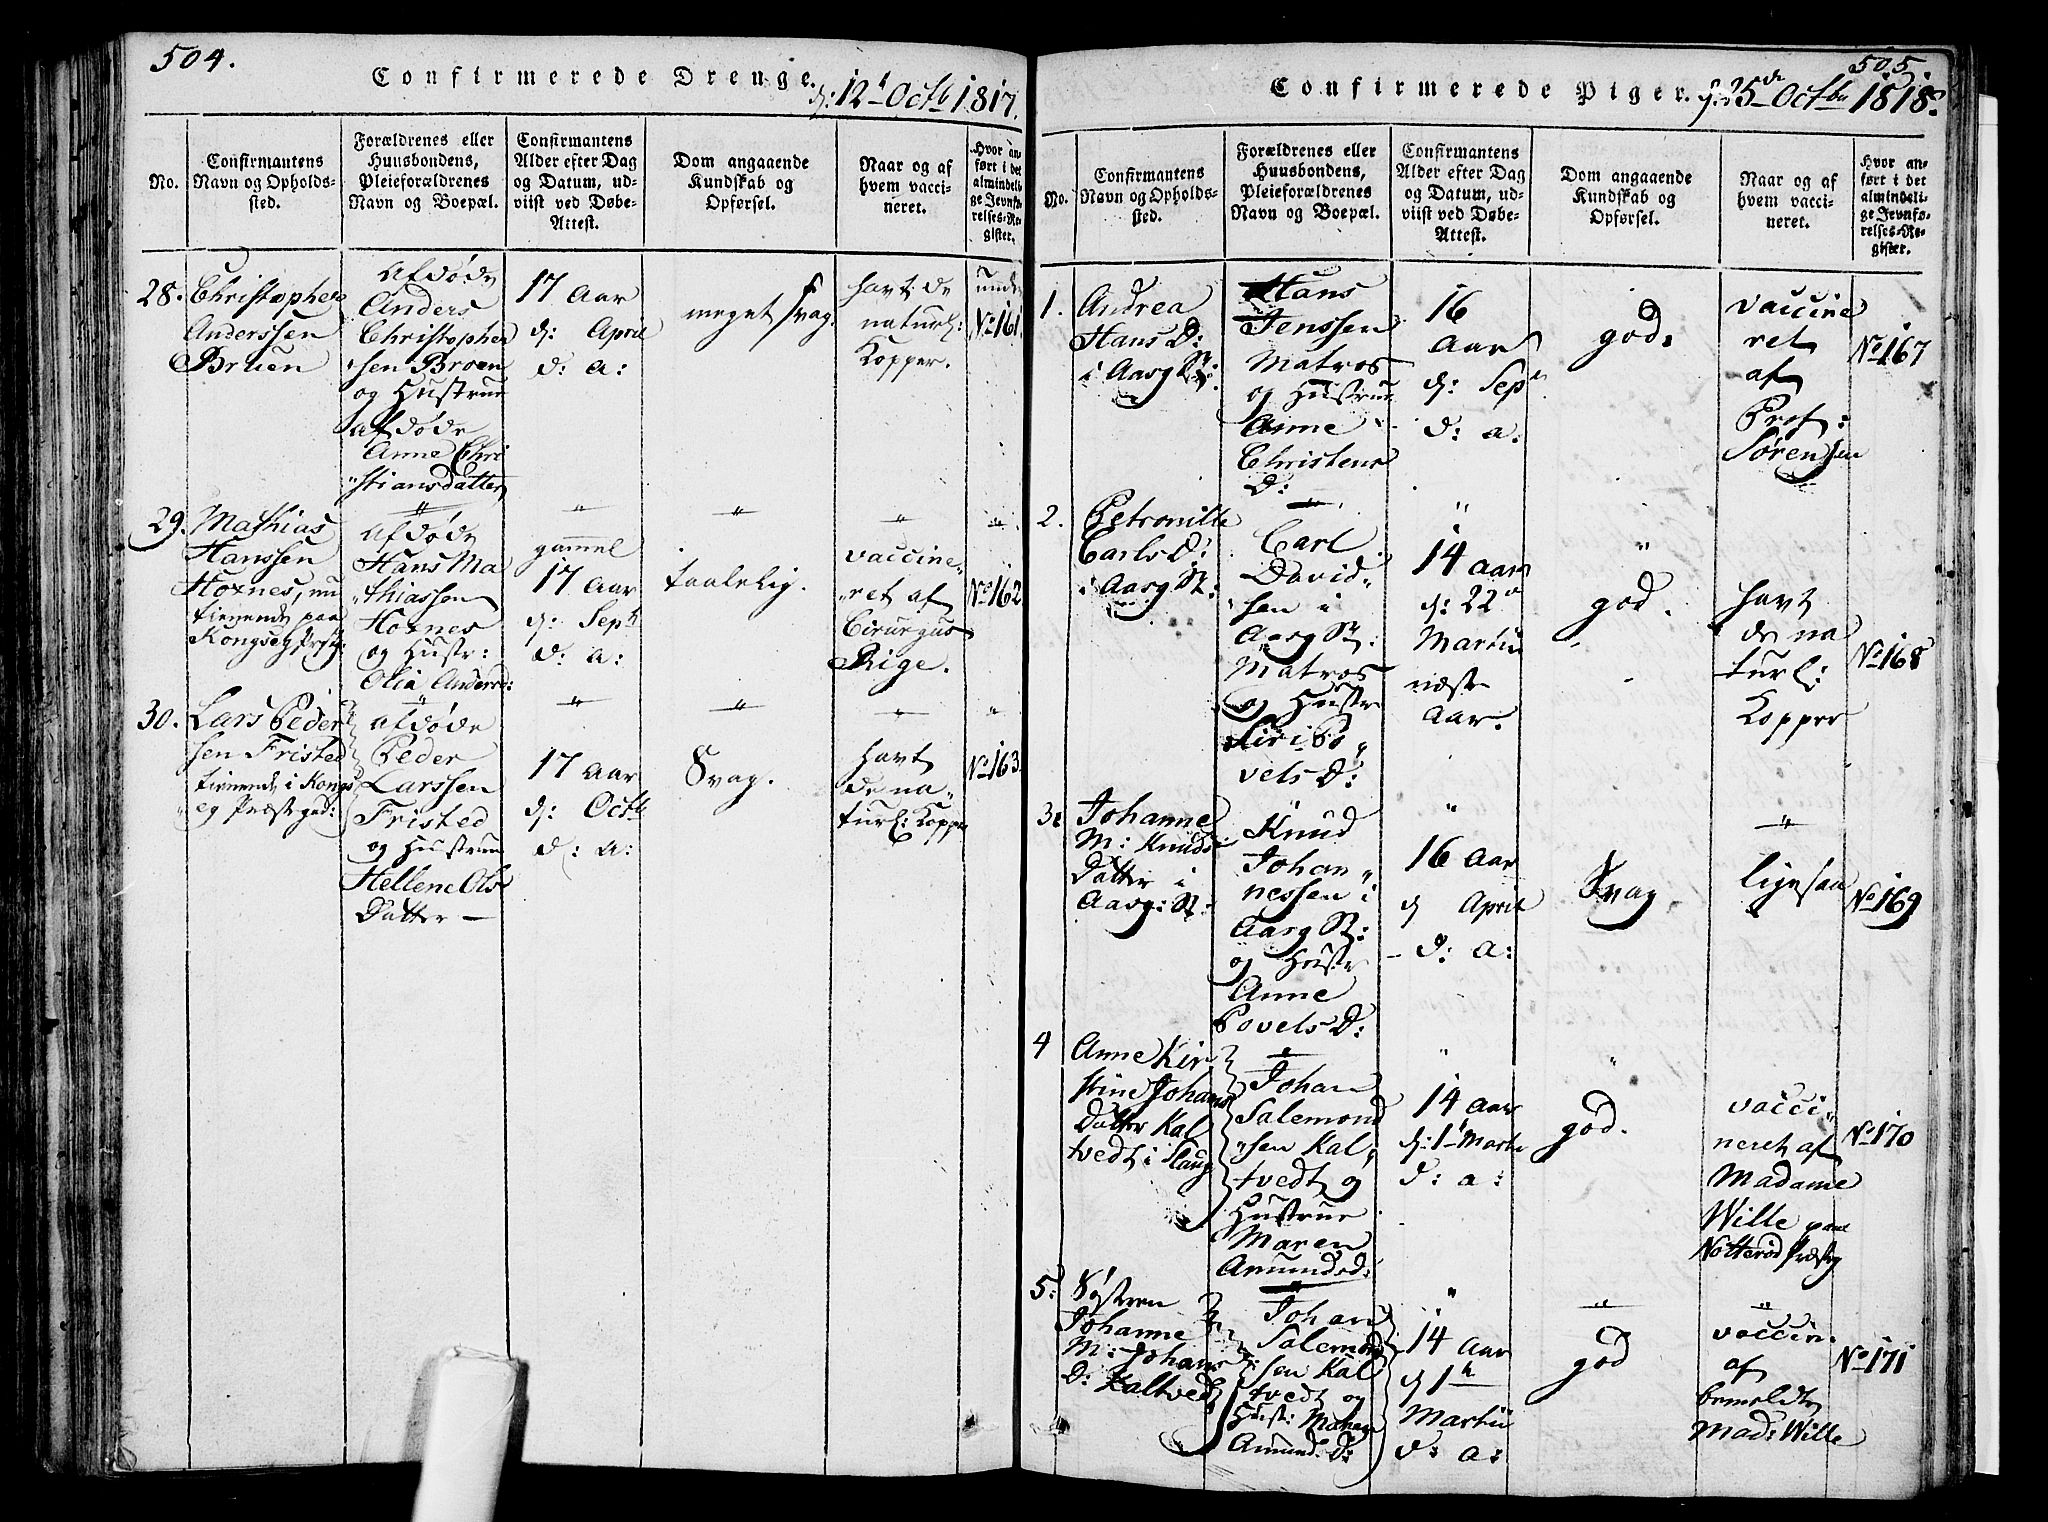 504.
Confirmerede Drenge. d: 12t Octb 1817.
No.
Confirmantens
Navn og Opholds-
sted.
Forældrenes eller
Huusbondens,
Pleieforældrenes
Navn og Boepæl.
Confirmantens
Alder efter Dag
og Datum, ud-
viist ved Døbe-
Attest.
Dom angaaende
Kundskab og
Opførsel.
Naar og af
hvem vacci-
neret.
Hvor an-
ført i det
almindeli-
ge Jevnfø-
relses-Re-
gister.
28.
Christopher
Anderssen
Bruen
Afdøde
Anders
Christopher
"sen Broen
og Hustrue
afdøde
Anne Chri
"stiansdatter
17 Aar
d: April
d: a:
meget svag.
havt de
naturl:
Kopper.
under
No 161.
29.
Mathias
Hanssen
Hoxnes, nu
tienende paa
Afdøde
Hans Ma
"thiassen
Hoxnes
og Hustr:
Olia Andersd:
"
gammel
17 Aar
d: Septb
d: a:
"
taalelig.
"
vaccine"
"ret af
Cirurgus
Rige.
"
No 162
30.
Lars Peder
sen Fristed
tienende i Kongs
eg Præstegad:
"
afdøde
Peder
Larssen
Fristed
og Hustrue
Hellene Ols
Datter —
"
17 Aar
d: Octb
d: a:
"
Svag.
"
havt
de na"
turl: Kopper
"
No 163.
505.
Confirmerede Piger. d: 25de Octbr 1818.
No.
Confirmantens
Navn og Opholds-
sted.
Forældrenes eller
Huusbondens,
Pleieforældrenes
Navn og Boepæl.
Confirmantens
Alder efter Dag
og Datum, ud-
viist ved Døbe-
Attest.
Dom angaaende
Kundskab og
Opførsel.
Naar og af
hvem vacci-
neret.
Hvor an-
ført i det
almindeli-
ge Jevnfø-
relses-Re-
gister.
1.
Andrea
Hans D:
i Aasg St:
Hans
Jenssen
Matros
og Hustrue
Anne
Christens
D:
16
Aar
d: Sept
d: a:
god.
vaccine
ret
af
Prof:
Sørenssen
No 167
2.
Petronille
Carls D:
i Aasg St:
"
Carl
David"
sen i
Aasg St:
Matros
og Hustr
Siri Po"
vels D:
"
14 Aar
d: 22
Martii
næste
Aar.
"
god.
havt
de na
turl:
Kopper
No 168
3.
Johanne
M: Knuds
Datter i
Aasg: St:
Knud
Johan"
nessen i
Aasg St:
og Hustr
Anne
Povels D:
"
16 Aar
d April
d: a:
Svag
"
ligesaa
No 169
4
Anne Kir
stine Johans
Datter Kal
tvedt i Slaug
"
Johan
Salemond
"sen Kal"
tvedt og
Hustrue
Maren
Amundsd:
"
14 Aar
d: 1t Marti
d: a:
"
god.
vacci"
neret af
Madame
Wille paa
Notterød Præsteg
No 170
5.
Søsteren
Johanne
M: Johans
D: Kaltvedt
"
Johan
Salemond
sen Kal
tvedt og
Hust: Maren
Amund. D:
"
14 Aar
d 1t
Martii
d: a:
"
god
"
vaccin.
af
bemeldte
Mad: Wille
No 171